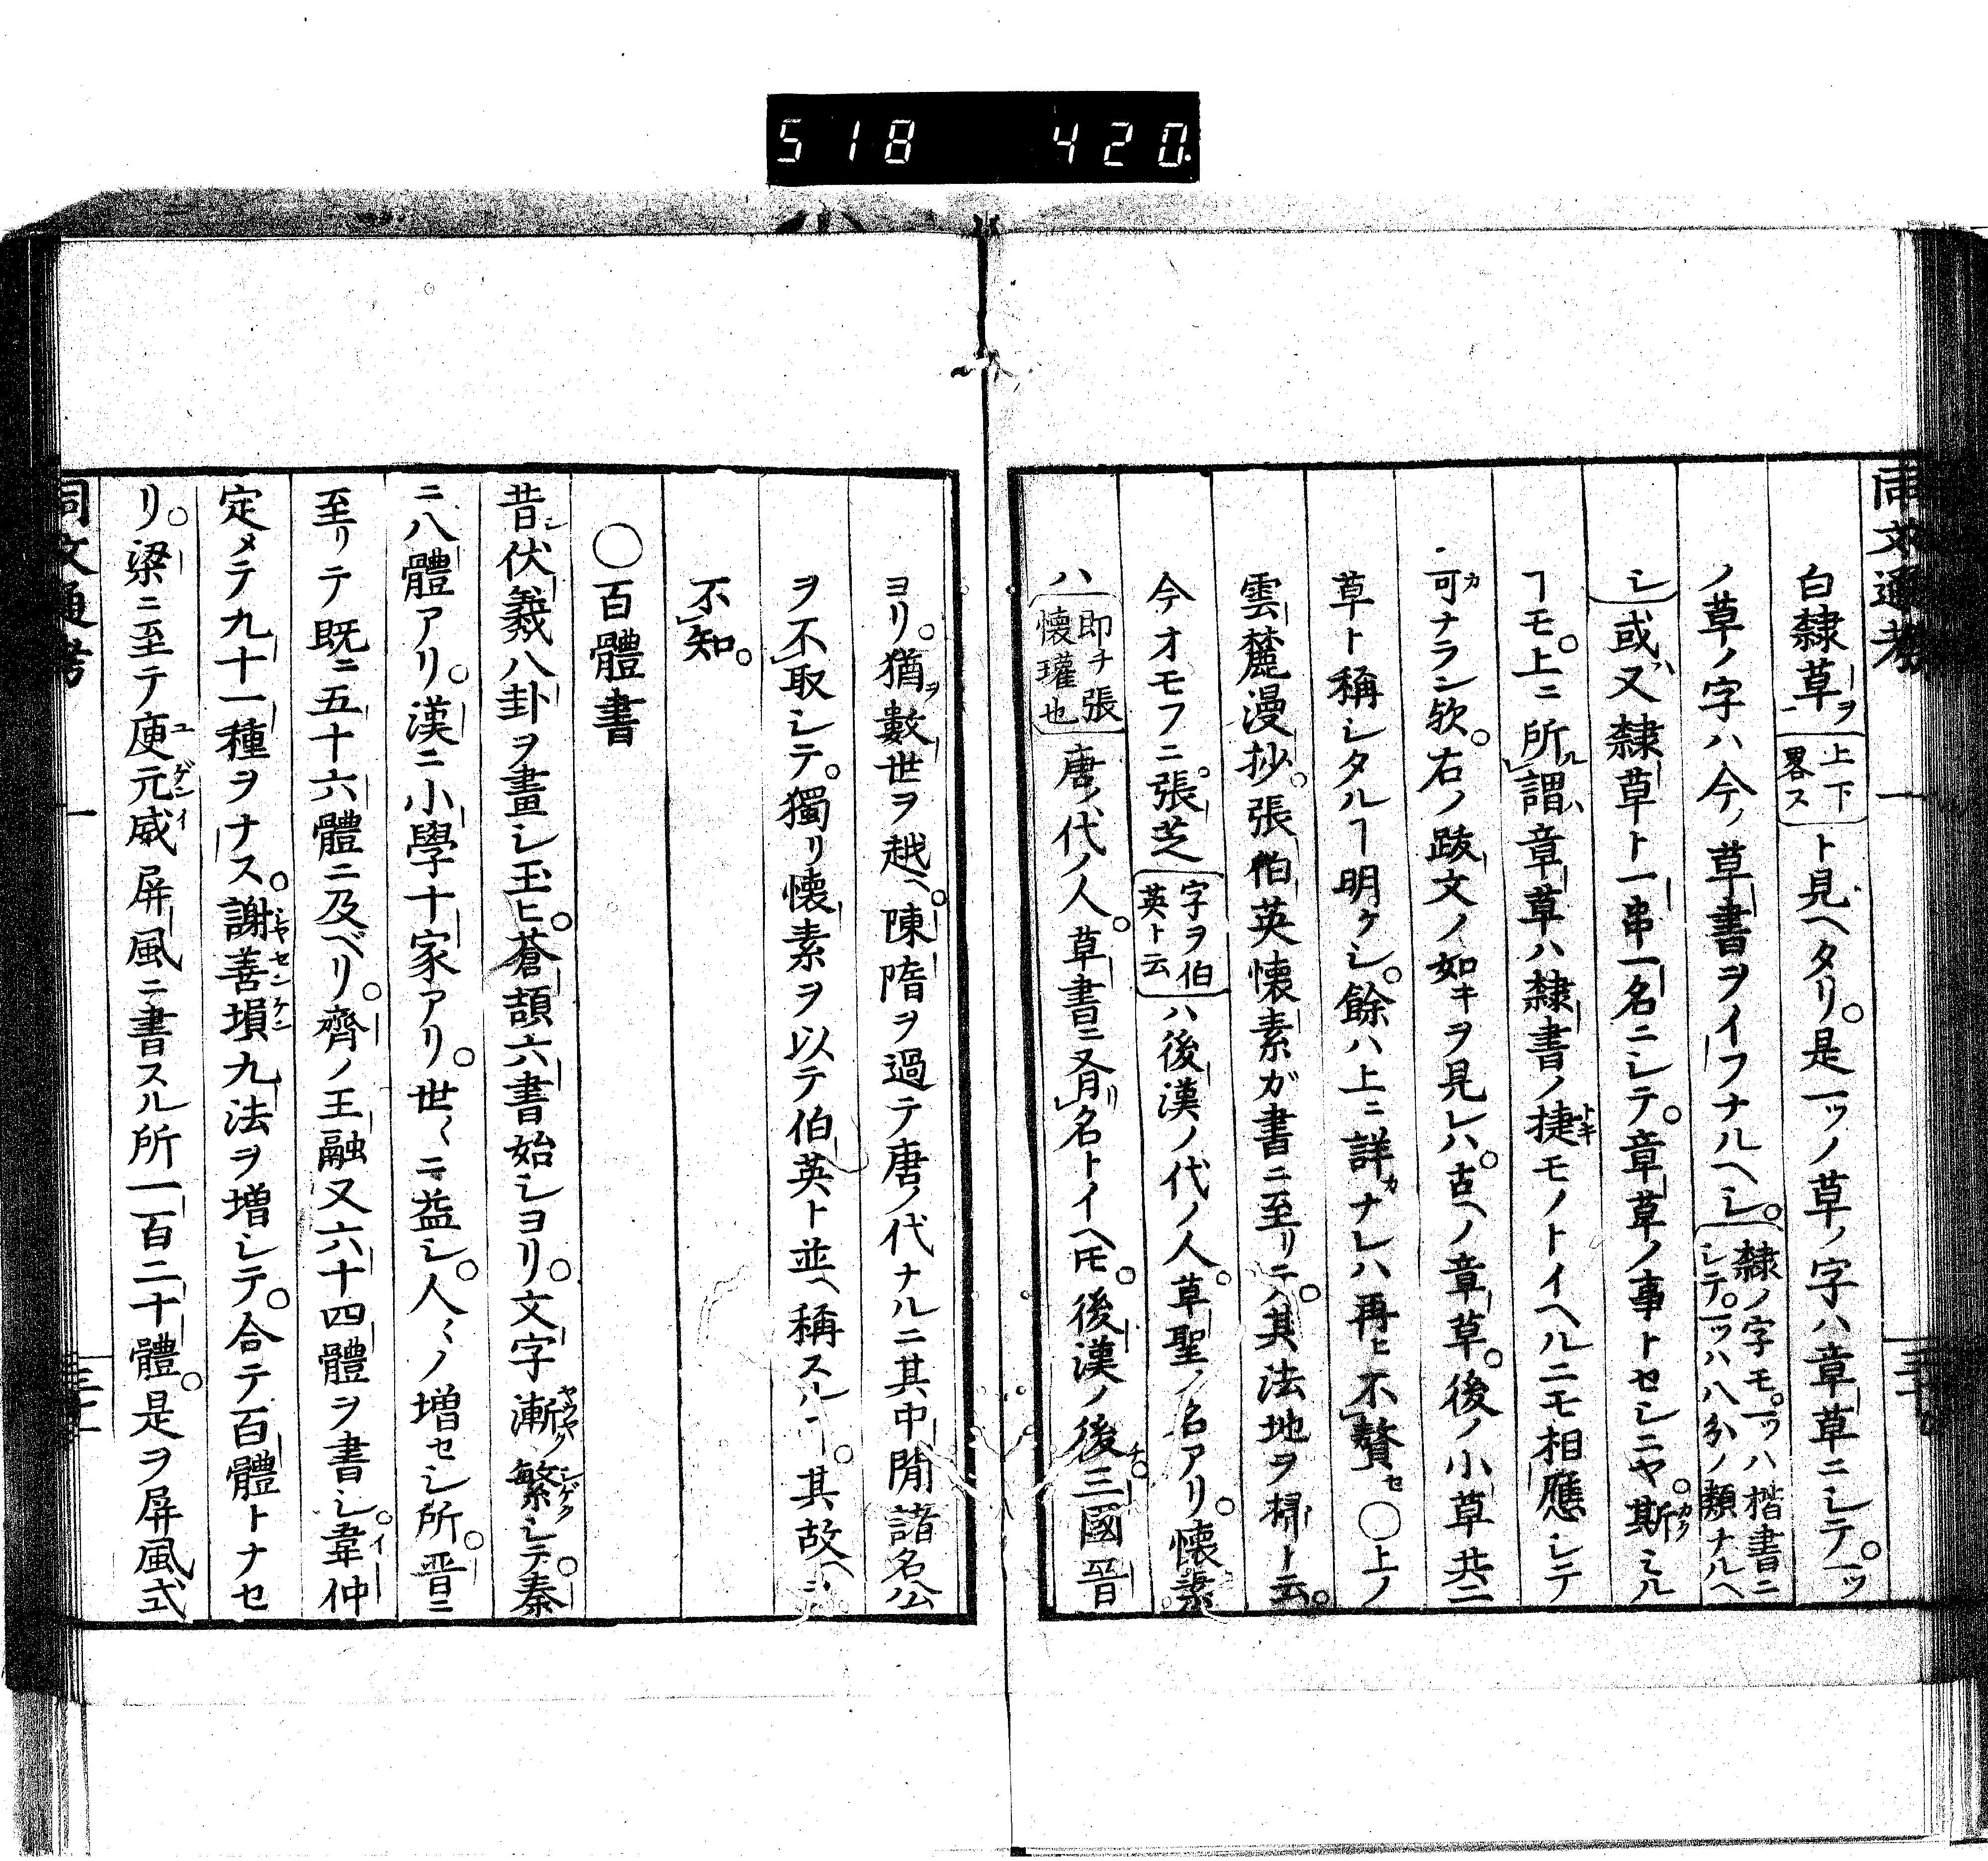 518 420
同文通考 一
白隸草ヲ(上下畧ス)ト見ヘタリ。是一ツノ草ノ字ハ章草ニシテ。一ツ
ノ草ノ字ハ今ノ草書ヲイフナルヘシ。(隸ノ字モ。一ツハ楷書ニシテ。一ツハ八分ノ類ナルヘ
シ)或ハ又隸草ト一串一名ニシテ。章草ノ事トセシニヤ。斯ミル
ヿモ。上ニ所謂章草ハ隸書ノ捷モノトイヘルニモ相應シテ
可ナラン欤。右ノ跋文ノ如キヲ見レハ。古ヘノ章草。後ノ小草共ニ
草ト稱シタルヿ明ケシ。餘ハ上ニ詳ナレハ再ヒ不贅セ〇上ノ
雲麓漫抄。張伯英懷素ガ書ニ至リテハ。其法地ヲ掃ト云。
今オモフニ。張芝(字ヲ伯英ト云)ハ後漢ノ代ノ人。草聖ノ名アリ。懷素
ハ(即チ張懷瓘也)唐ノ代ノ人。草書ニ有名トイヘ𪜈。後漢ノ後チ。三國晉
ヨリ。猶數世ヲ越ヘ。陳隋ヲ過テ唐ノ代ナルニ其中間諸名公
ヲ不取シテ。獨リ懷素ヲ以テ伯英ト並ヘ稱スルヿ。其故ヘヲ
不知。
〇百體書
昔シ伏羲八卦ヲ畫シ玉ヒ。蒼頡六書始シヨリ。文字漸繁シテ。秦
ニ八體アリ。漢ニ小學十家アリ。世々ニ益シ。人々ノ増セシ所。晋ニ
至リテ既ニ五十六體ニ及ベリ。齊ノ王融又六十四體ヲ書シ。韋仲
定メテ九十一種ヲナス。謝善塤九法ヲ増シテ。合テ百體トナセ
リ。梁ニ至テ庾元威屏風ニ書スル所一百二十體。是ヲ屏風式
同文通考 一